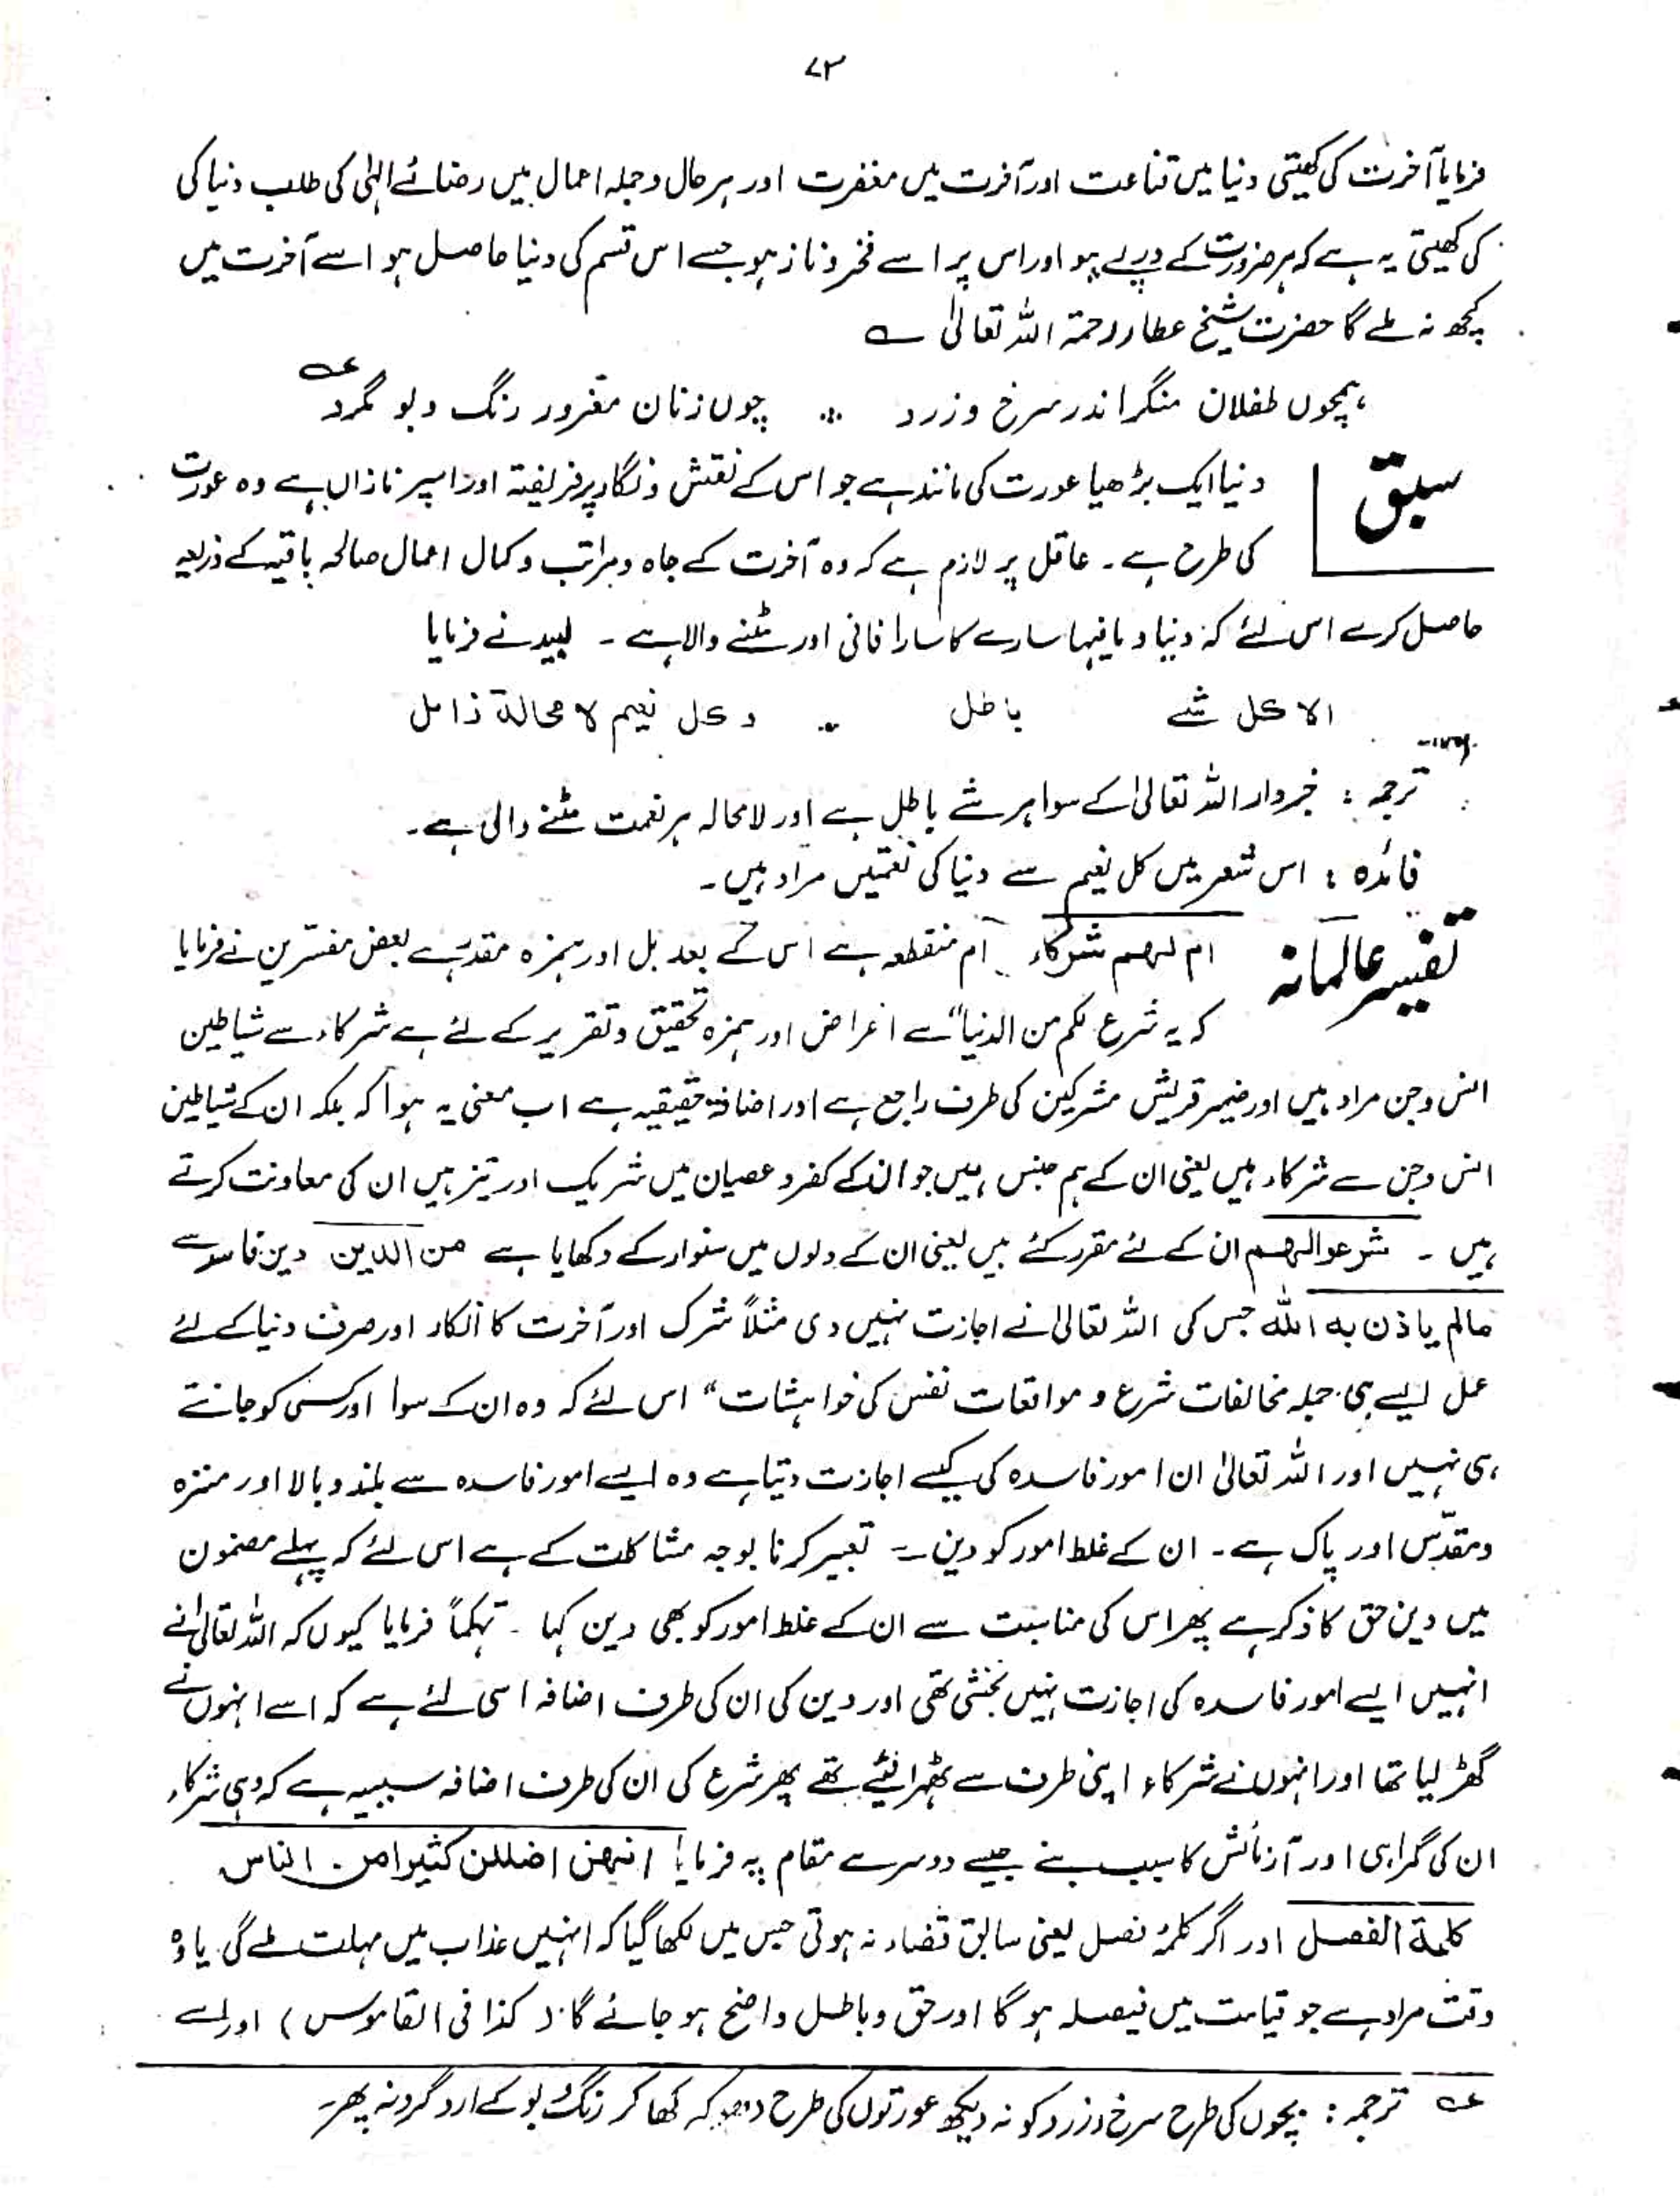 ۷۳
فرمایا آخرت کی کھیتی دنیا میں قناعت اور آخرت میں مغفرت اور ہر حال وجملہ اعمال میں رضائے الہٰی کی طلب دنیا کی
کی کھیتی یہ ہے کہ ہر ضرورت کے درپے ہو اور اس پر اسے فخر و ناز ہو جسے اس قسم کی دنیا حاصل ہو اسے آخرت میں
کچھ نہ ملے گا حضرت شیخ عطار رحمۃ اللہ تعالیٰ ؎
ہمچوں طفلان منگر اندر سرخ و زرد ؞ چوں زنان مغرور رنگ و بو گرد عہ
سبق
دنیا ایک بڑھیا عورت کی مانند ہے جو اس کے نقش و نگار پر فریفتہ اور اسپر نازاں ہے وہ عورت
کی طرح ہے ۔ عاقل پر لازم ہے کہ وہ آخرت کے جاہ و مراتب و کمال اعمال صالحہ باقیہ کے ذریعہ
حاصل کرے اس لئے کہ دنیا و مافیہا سارے کا سارا فانی اور مٹنے والا ہے ۔ لبید نے فرمایا
الا کل شے باطل ؞ و کل نعیم لا محالة زائل
ترجمہ : خبردار اللہ تعالیٰ کے سوا ہر شے باطل ہے اور لامحالہ ہر نعمت مٹنے والی ہے ۔
فائدہ : اس شعر میں کل نعیم سے دنیا کی نعمتیں مراد ہیں ۔
تفسیر عالمانہ
ام لہم شرکاء ام منقطعہ ہے اس کے بعد بل اور ہمزہ مقدر ہے بعض مفسرین نے فرمایا
کہ یہ شرع لکم من الدنیا" سے اعراض اور ہمزہ تحقیق و تقریر کے لئے ہے شرکاء سے شیاطین
انس و جن مراد ہیں اور ضمیر قریش مشرکین کی طرف راجع ہے اور اضافۃ حقیقیہ ہے اب معنی یہ ہوا کہ بلکہ ان کے شیاطین
انس و جن سے شرکاء ہیں یعنی ان کے ہم جنس ہیں جو ان کے کفر و عصیان میں شریک اور نیز ہیں ان کی معاونت کرتے
ہیں ۔ شرعوا لہم ان کے لئے مقرر کئے ہیں یعنی ان کے دلوں میں سنوار کے دکھایا ہے من الدین دین فاسد سے
مالم یاذن بہ اللہ جس کی اللہ تعالیٰ نے اجازت نہیں دی مثلاً شرک اور آخرت کا انکار اور صرف دنیا کے لئے
عمل ایسے ہی جملہ مخالفات شرع و موافقات نفس کی خواہشات" اس لئے کہ وہ ان کے سوا اور کسی کو جانتے
ہی نہیں اور اللہ تعالیٰ ان امور فاسدہ کی کیسے اجازت دیتا ہے وہ ایسے امور فاسدہ سے بلند و بالا اور منزہ
و مقدّس اور پاک ہے ۔ ان کے غلط امور کو دین سے تعبیر کرنا بوجہ مشاکلت کے ہے اس لئے کہ پہلے مضمون
میں دین حق کا ذکر ہے پھر اس کی مناسبت سے ان کے غلط امور کو بھی دین کہا ۔ تہکماً فرمایا کیوں کہ اللہ تعالیٰ نے
انہیں ایسے امور فاسدہ کی اجازت نہیں بخشی تھی اور دین کی ان کی طرف اضافہ اسی لئے ہے کہ اسے انہوں نے
گھڑ لیا تھا اور انہوں نے شرکاء اپنی طرف سے ٹھہرا لئے تھے پھر شرع کی ان کی طرف اضافہ سببیہ ہے کہ وہی شرکاء
ان کی گمراہی اور آزمائش کا سبب بنے جیسے دوسرے مقام پہ فرمایا انہن اضللن کثیرا من الناس
کلمۃ الفصل اور اگر کلمۂ فصل یعنی سابق قضاء نہ ہوتی جس میں لکھا گیا کہ انہیں عذاب میں مہلت ملے گی یا وہ
وقت مراد ہے جو قیامت میں فیصلہ ہو گا اور حق و باطل واضح ہو جائے گا . ( کذا فی القاموس ) اور اسے
عہ ترجمہ : بچوں کی طرح سرخ و زرد کو نہ دیکھ عورتوں کی طرح دھوکہ کھا کر رنگ و بو کے ارد گرد نہ پھر۔